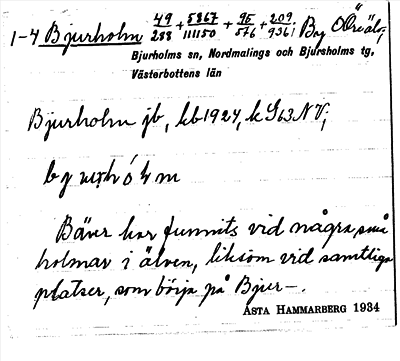 1-4 Bjurholm 49/288 + 5867/111150 + 95/576 + 209/9361 By Ö Öreälv,
Bjurholms sn, Nordmalings och Bjurholms tg,
Västerbottens län
Bjurholm jb, kb 1924, k G63NV;
Bäver har funnits vid några små
holmar i älven, liksom vid samtliga
platser, som börja på Bjur-.
ASTA HAMMARBERG 1934